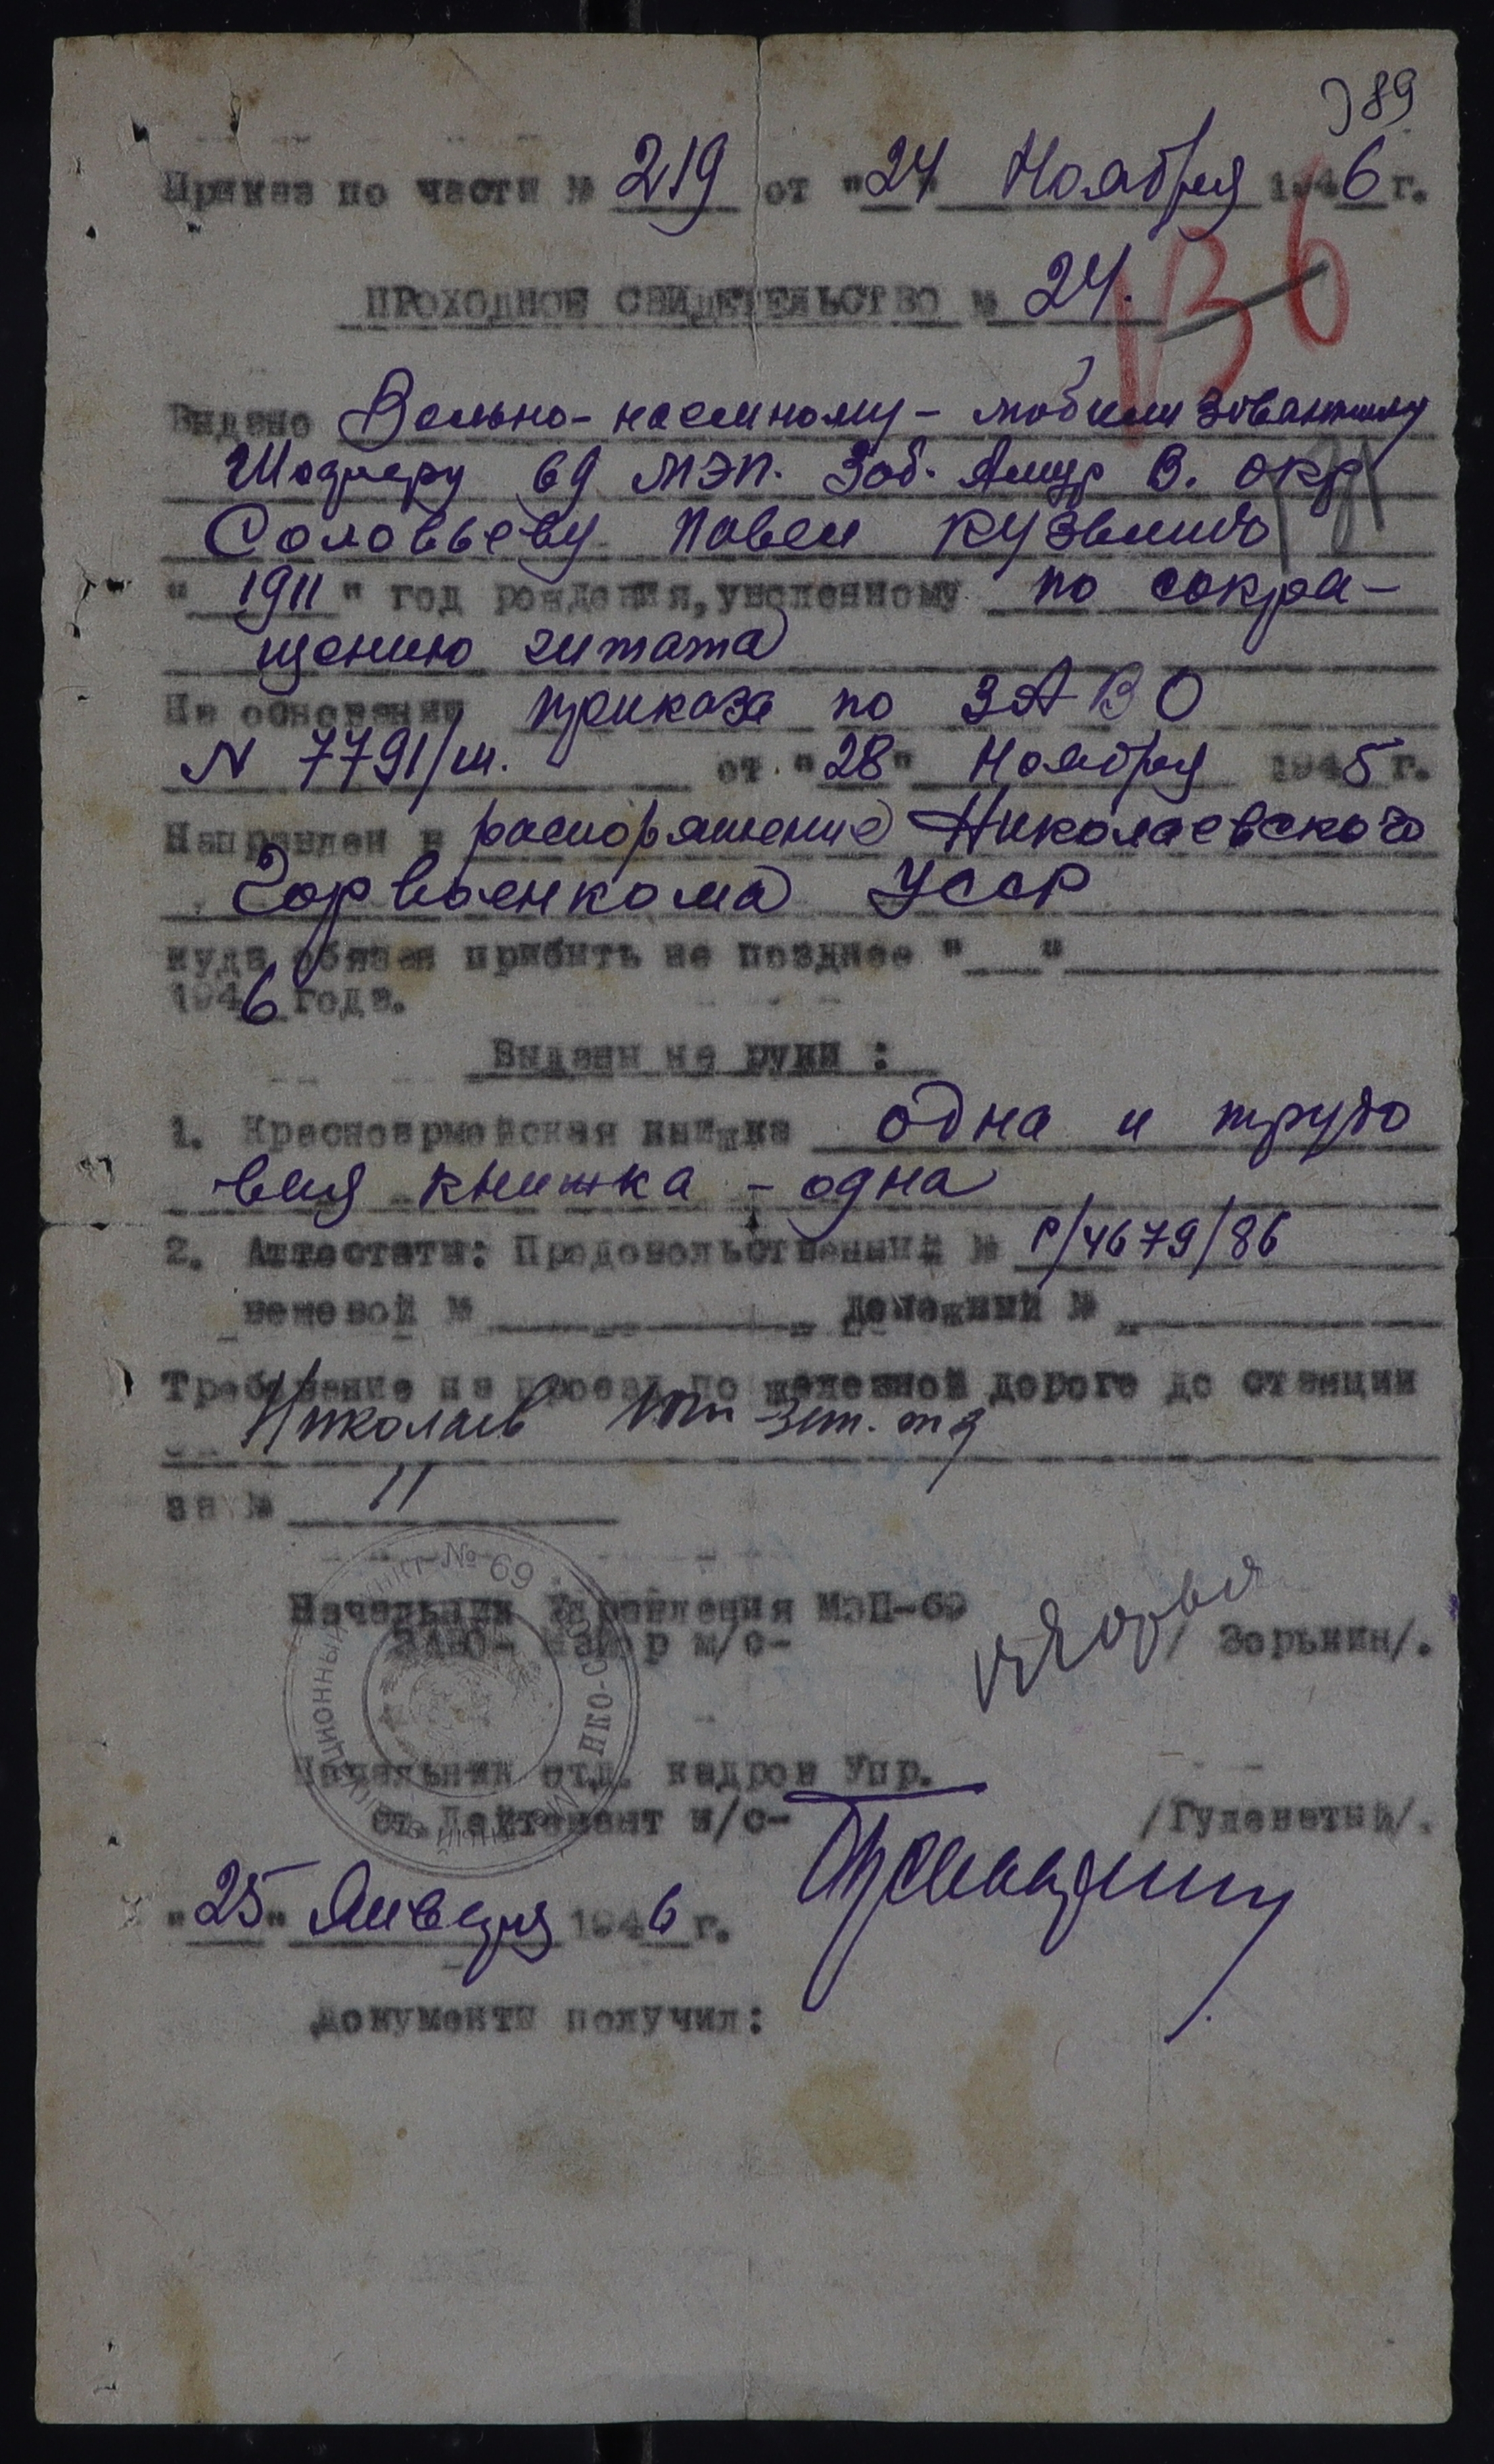 389
Приказ по части № 219 от "24" Ноября 1946 г.
ПРОХОДНОЕ СВИДЕТЕЛЬСТВО № 24.
136
Выдано Вольно-наемному - мобилизованному
Шоферу 69 МЭП. Заб. Амур В. окр
Соловьеву Павел Кузьмич
"1911" год рождения, уволенному по сокра-
щению штата
На основании приказа по ЗАВО
N 7791/ш. от "28" Ноября 1945 г.
Направлен в распоряжение Николаевского
Горвоенкома УССР
куда обязан прибыть не позднее " "
1946 года.
Выданы на руки :
1. Красноармейская книжка одна и трудо
вая книжка - одна
2. Аттестаты: Продовольственный № Р/4679/86
вещевой № денежный №
Требование на проезд по железной дороге до станции
Николаев
за № 11
Начальник Управления МЭП-69
ЗАВО- майор м/с- /Зорькин/.
Начальник отд. кадров Упр.
Ст. Лейтенант и/с- /Гуленатый/.
"25" Января 1946 г.
Документы получил:
пункт № 69
НКО-С